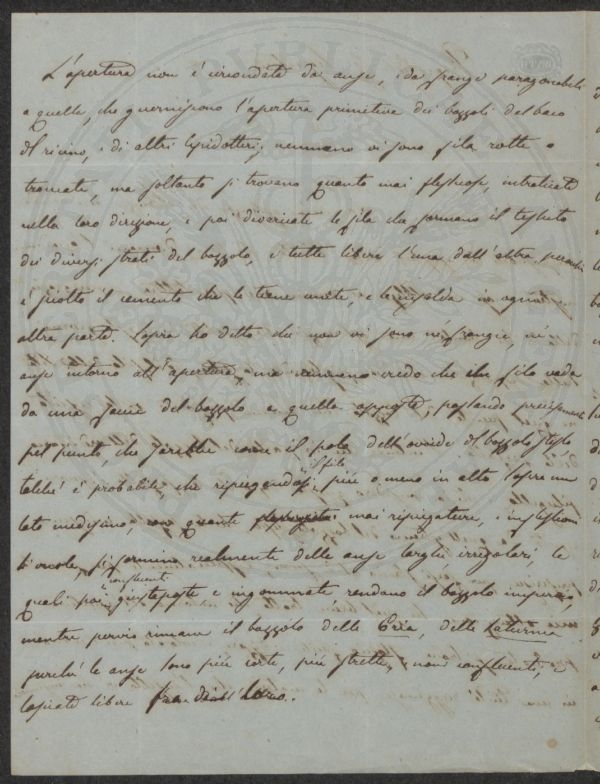 L'apertura non è circondata da anse, o da frange paragonabili
a quelle, che guerniscono l'apertura primitiva dei bozzoli del baco
del ricino, e di altri lepidotteri; nemmeno vi sono fila rotte o
troncate, ma soltanto si trovano quanto mai flessuose, intralciate
nella loro direzione, e poi divaricate le fila che formano il tessuto
dei diversi strati del bozzolo, e tutte libere l'una dall'altra, perchè
è sciolto il cemento che le tiene unite, e le insalda in ogni
altra parte. Sopra ho detto che non vi sono nè frangie, nè
anse intorno all'apertura, ma nemmeno credo che un filo vada
da una faccia del bozzolo a quella opposta, passando precisamente
pel punto, che sarebbe come il polo dell'ovoide del bozzolo stesso,
talchè è probabile, che ripiegandosi il filo, più o meno in alto sopra un
lato medesimo, con quante mai ripiegature, e inflessioni
si vuole, si formino realmente delle anse larghe irregolari, le
quali poi confluenti giustaposte e ingommate rendano il bozzolo impervio,
mentre pervio rimane il bozzolo della Cria, della Saturnia
perchè le anse sono più corte, più strette, e non confluenti, e
lasciate libere fra di loro.